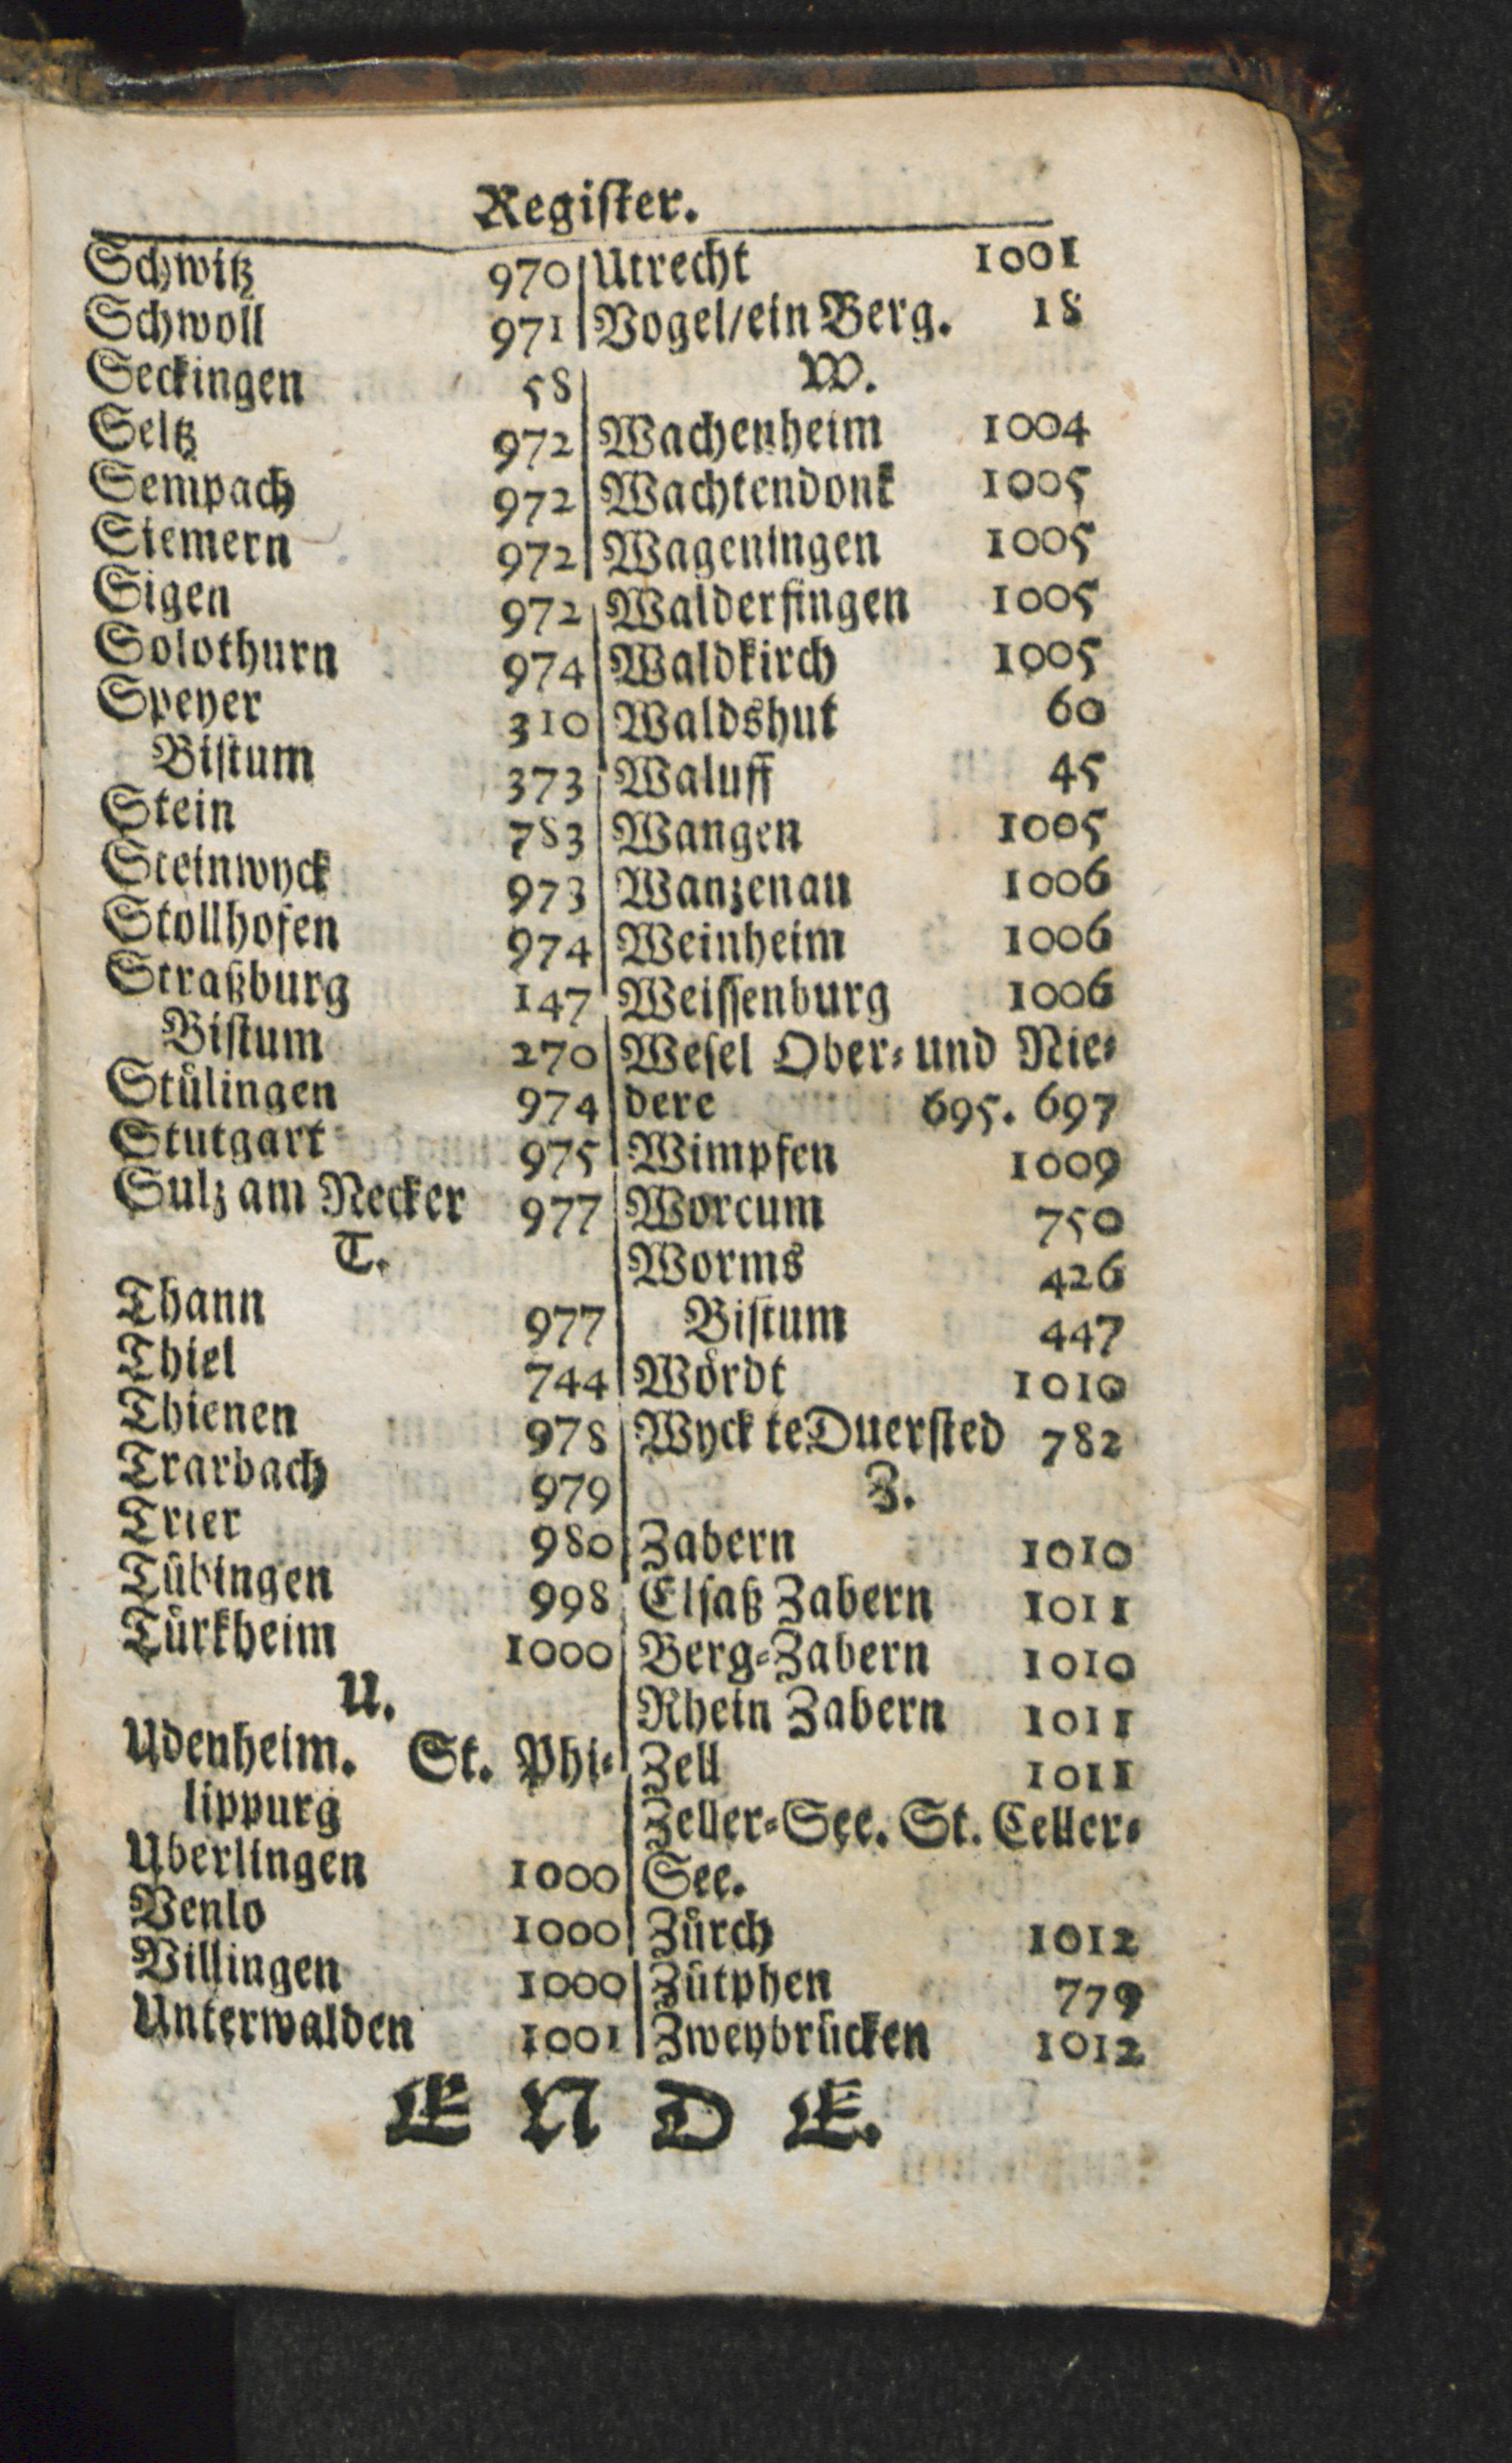 Regiſter.
Schwitz 970
Schwoll 971
Seckingen 58
Seltz 972
Sempach 972
Siemern 972
Sigen 972
Solothurn 974
Speyer 310
Biſtum 373
Stein 783
Steinwyck 973
Stollhofen 974
Straßburg 147
Biſtum 270
Stuͤlingen 974
Stutgart 975
Sulz am Necker 977
T.
Thann 977
Thiel 744
Thienen 978
Trarbach 979
Trier 980
Tuͤbingen 998
Tuͤrkheim 1000
U.
Udenheim. St. Phi-
lippurg
Uberlingen 1000
Venlo 1000
Villingen 1000
Unterwalden 1001
Utrecht 1001
Vogel/ein Berg. 18
W.
Wachenheim 1004
Wachtendonk 1005
Wageningen 1005
Walderfingen 1005
Waldkirch 1005
Waldshut 60
Waluff 45
Wangen 1005
Wanzenau 1006
Weinheim 1006
Weiſſenburg 1006
Weſel Ober- und Nie-
dere 695. 697
Wimpfen 1009
Worcum 750
Worms 426
Biſtum 447
Woͤrdt 1010
Wyck te Duerſted 782
Z.
Zabern 1010
Elſaß Zabern 1011
Berg-Zabern 1010
Rhein Zabern 1011
Zell 1011
Zeller-See. St. Celler-
See.
Zuͤrch 1012
Zuͤtphen 779
Zweybruͤcken 1012
ENDE.